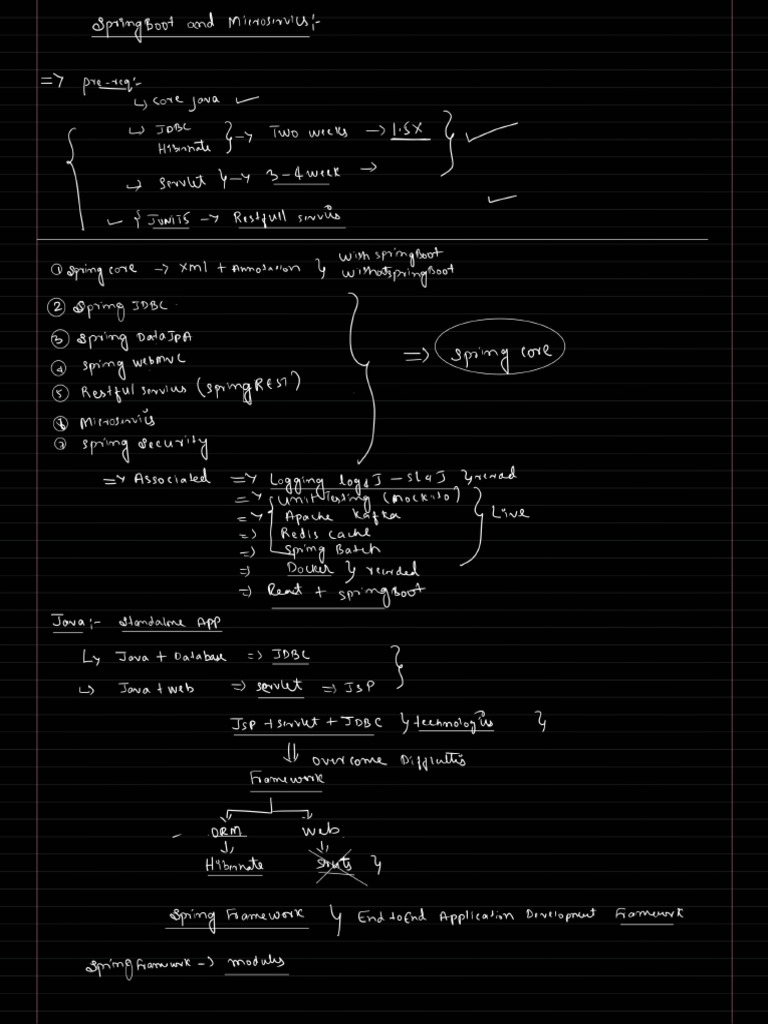 SpringBoot and Microservices:-
=> pre-req:-
↳ core java ✓
↳ JDBC
Hibernate } → Two weeks → 1.5X
↳ Servlet } → 3-4 week →
✓ { JUNIT5 → Restfull servies
① Spring core → xml + Annotation } with springBoot
withoutspringBoot
② Spring JDBC
③ Spring DataJPA
④ Spring WebMVC
⑤ Restful servies (SpringREST)
⑥ Microservies
⑦ Spring Security
=> Spring core
=> Associated => Logging log4J - sl4J } record
=> Unit Testing (mockito)
=> Apache Kafka
=> Redis cache
=> Spring Batch
} Live
=> Docker } recorded
=> React + springBoot
Java:- Standalone App
↳ Java + Database => JDBC
↳ Java + web => servlet => JSP
JSP + servlet + JDBC } technologies }
⇓ overcome Difficultis
Framework
ORM Web
↓ ↓
Hibernate Struts }
Spring Framework } End to End Application Development Framework
Spring Framework → modules